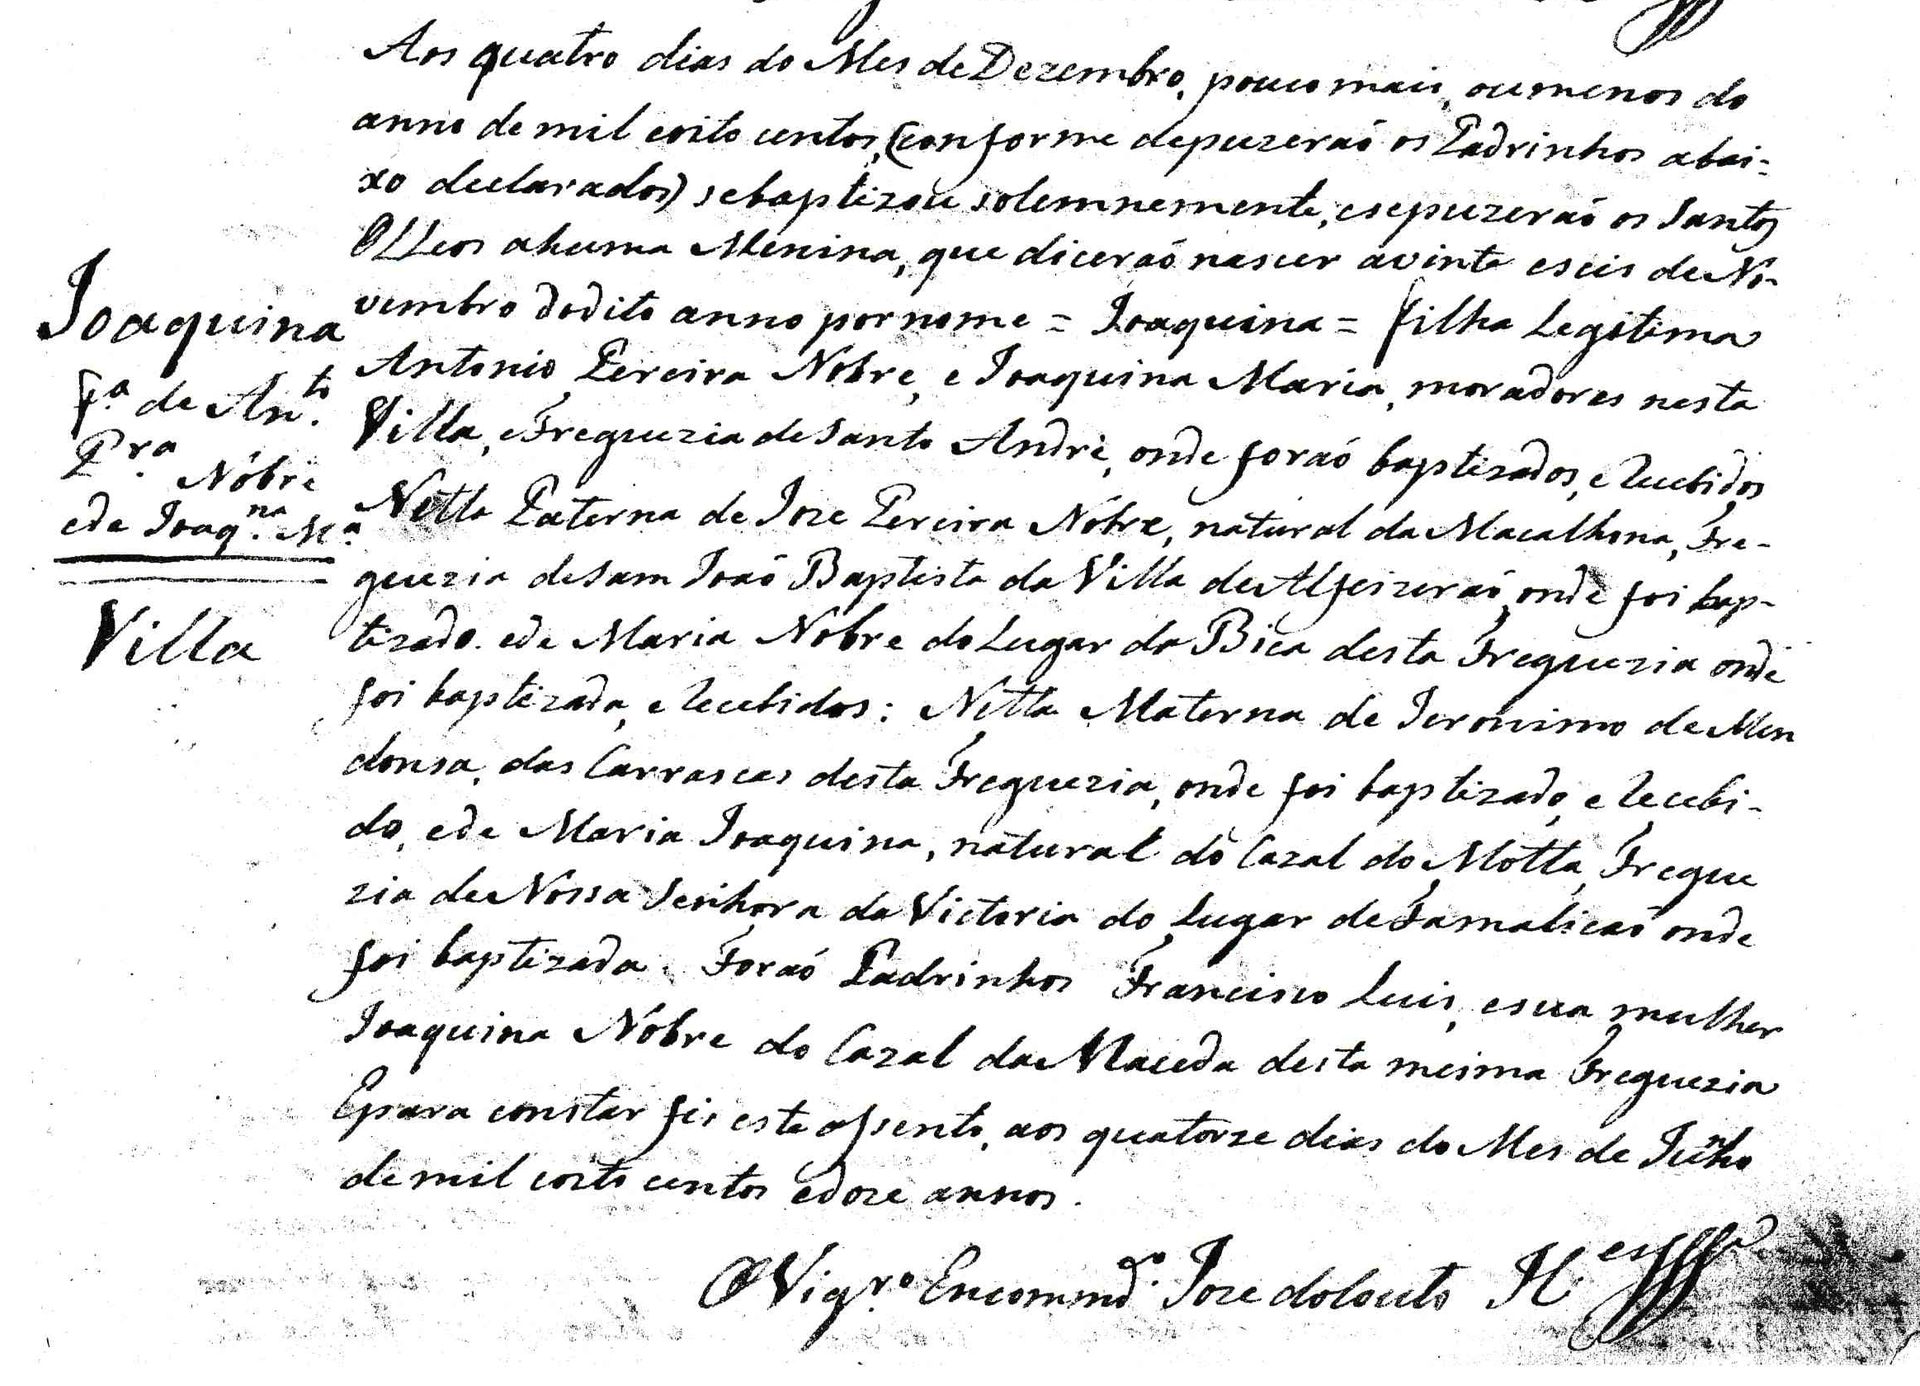 Aos quatro dias do Mes de Dezembro, pouco mais, ou menos do
anno de mil e oito centos, (conforme depuzeraó os Padrinhos abai-
xo declarados) se baptizou solemnemente, e se puzeraó os Santos
Olleos a huma Menina, que diceraó nascer a vinte e seis de No-
vembro do dito anno por nome = Joaquina = filha Legitima
Antonio Pereira Nobre, e Joaquina Maria, moradores nesta
Villa, e Freguezia de Santo André, onde foraó baptizados, e recebidos
Netta Paterna de Joze Pereira Nóbre, natural da Macalhona, Fre-
guezia de Sam Joaó Baptista da Villa de Alfeizeraó, onde foi bap-
tizado. e de Maria Nobre do Lugar da Bica desta Freguezia onde
foi baptizada, e recebidos: Netta Materna de Jeronimo de Men
donsa, das Carrascas desta Freguezia, onde foi baptizado, e recebi-
do, e de Maria Joaquina, natural do Cazal do Motta, Fregue
zia de Nossa Senhora da Victoria do Lugar de Famalicaó onde
foi baptizada. Foraó Padrinhos Francisco Luis, e sua mulher
Joaquina Nóbre do Cazal da Maceda desta mesma Freguezia
E para constar fis este assento, aos quatorze dias do Mes de Junho
de mil e oito centos e doze annos.
O Vigr.o Encommd.o Joze do Couto H.es
Joaquina
f.a de Ant.o
Pr.a Nóbre
e de Joaq.na M.a
Villa